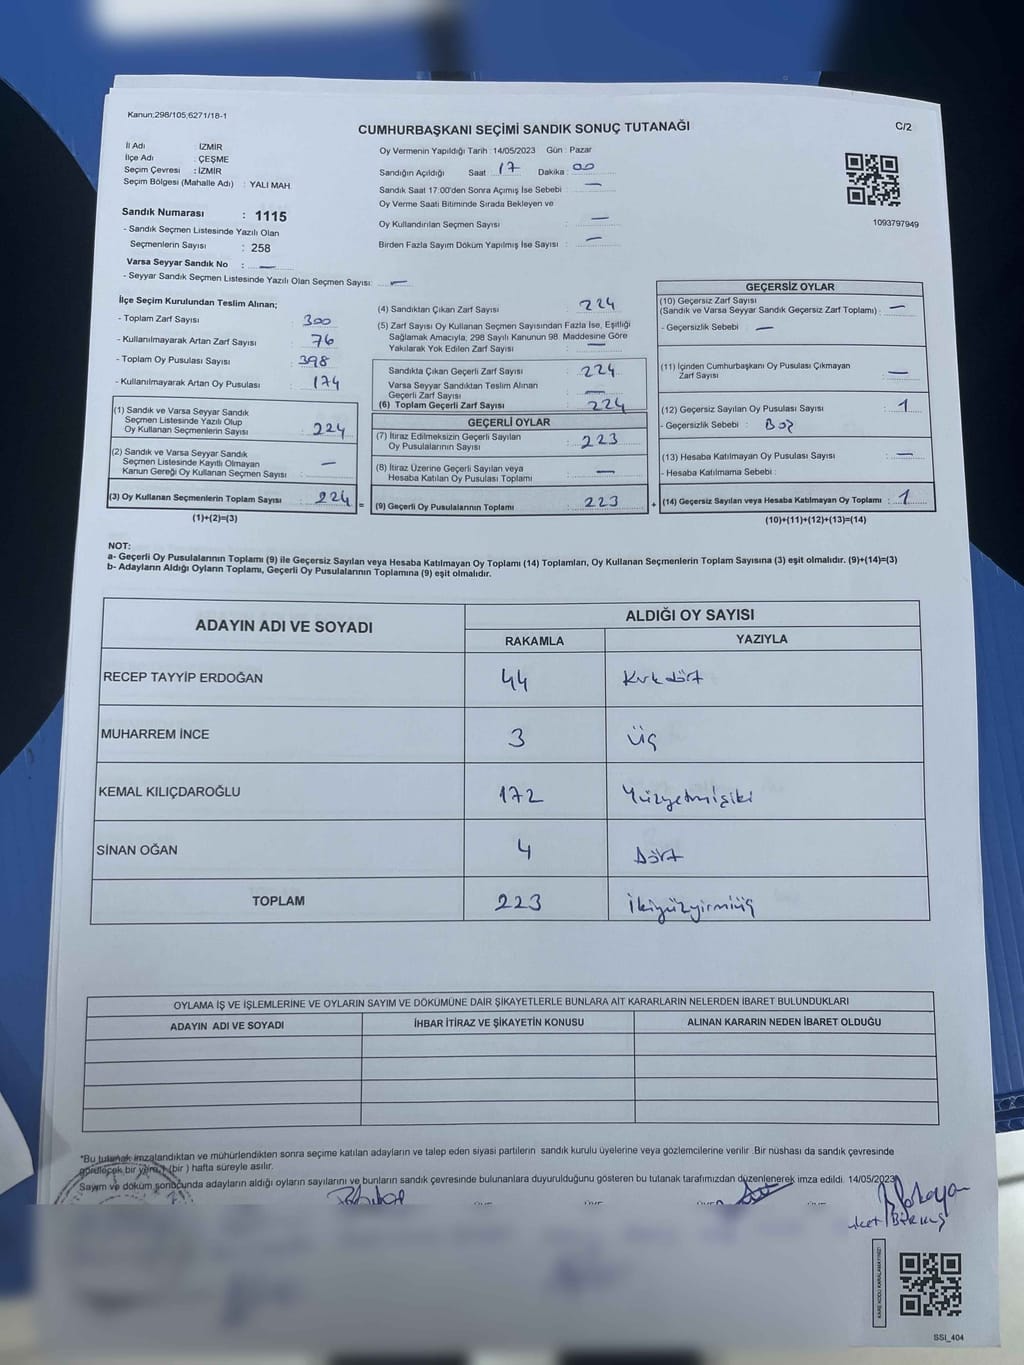 Kanun;298/105;6271/18-1
CUMHURBAŞKANI SEÇİMİ SANDIK SONUÇ TUTANAĞI
C/2
İl Adı : İZMİR
İlçe Adı : ÇEŞME
Seçim Çevresi : İZMİR
Seçim Bölgesi (Mahalle Adı) : YALI MAH.
Sandık Numarası : 1115
- Sandık Seçmen Listesinde Yazılı Olan
Seçmenlerin Sayısı : 258
Varsa Seyyar Sandık No : —
- Seyyar Sandık Seçmen Listesinde Yazılı Olan Seçmen Sayısı: —
Oy Vermenin Yapıldığı Tarih : 14/05/2023 Gün : Pazar
Sandığın Açıldığı Saat : 17 Dakika : 00
Sandık Saat 17:00'den Sonra Açımış İse Sebebi : —
Oy Verme Saati Bitiminde Sırada Bekleyen ve
Oy Kullandırılan Seçmen Sayısı : —
Birden Fazla Sayım Döküm Yapılmış İse Sayısı : —
1093797949
İlçe Seçim Kurulundan Teslim Alınan;
- Toplam Zarf Sayısı : 300
- Kullanılmayarak Artan Zarf Sayısı : 76
- Toplam Oy Pusulası Sayısı : 398
- Kullanılmayarak Artan Oy Pusulası : 174
(1) Sandık ve Varsa Seyyar Sandık
Seçmen Listesinde Yazılı Olup
Oy Kullanan Seçmenlerin Sayısı : 224
(2) Sandık ve Varsa Seyyar Sandık
Seçmen Listesinde Kayıtlı Olmayan
Kanun Gereği Oy Kullanan Seçmen Sayısı : —
(3) Oy Kullanan Seçmenlerin Toplam Sayısı : 224 =
(1)+(2)=(3)
(4) Sandıktan Çıkan Zarf Sayısı : 224
(5) Zarf Sayısı Oy Kullanan Seçmen Sayısından Fazla İse, Eşitliği
Sağlamak Amacıyla; 298 Sayılı Kanunun 98. Maddesine Göre
Yakılarak Yok Edilen Zarf Sayısı : —
Sandıkta Çıkan Geçerli Zarf Sayısı : 224
Varsa Seyyar Sandıktan Teslim Alınan
Geçerli Zarf Sayısı : —
(6) Toplam Geçerli Zarf Sayısı : 224
GEÇERLİ OYLAR
(7) İtiraz Edilmeksizin Geçerli Sayılan
Oy Pusulalarının Sayısı : 223
(8) İtiraz Üzerine Geçerli Sayılan veya
Hesaba Katılan Oy Pusulası Toplamı : —
(9) Geçerli Oy Pusulalarının Toplamı : 223 +
GEÇERSİZ OYLAR
(10) Geçersiz Zarf Sayısı
(Sandık ve Varsa Seyyar Sandık Geçersiz Zarf Toplamı) : —
- Geçersizlik Sebebi : —
(11) İçinden Cumhurbaşkanı Oy Pusulası Çıkmayan
Zarf Sayısı : —
(12) Geçersiz Sayılan Oy Pusulası Sayısı : 1
- Geçersizlik Sebebi : Boş
(13) Hesaba Katılmayan Oy Pusulası Sayısı : —
- Hesaba Katılmama Sebebi :
(14) Geçersiz Sayılan veya Hesaba Katılmayan Oy Toplamı : 1
(10)+(11)+(12)+(13)=(14)
NOT:
a- Geçerli Oy Pusulalarının Toplamı (9) ile Geçersiz Sayılan veya Hesaba Katılmayan Oy Toplamı (14) Toplamları, Oy Kullanan Seçmenlerin Toplam Sayısına (3) eşit olmalıdır. (9)+(14)=(3)
b- Adayların Aldığı Oyların Toplamı, Geçerli Oy Pusulalarının Toplamına (9) eşit olmalıdır.
ADAYIN ADI VE SOYADI
ALDIĞI OY SAYISI
RAKAMLA YAZIYLA
RECEP TAYYİP ERDOĞAN 44 Kırkdört
MUHARREM İNCE 3 üç
KEMAL KILIÇDAROĞLU 172 Yüzyetmişiki
SİNAN OĞAN 4 Dört
TOPLAM 223 İkiyüzyirmiüç
OYLAMA İŞ VE İŞLEMLERİNE VE OYLARIN SAYIM VE DÖKÜMÜNE DAİR ŞİKAYETLERLE BUNLARA AİT KARARLARIN NELERDEN İBARET BULUNDUKLARI
ADAYIN ADI VE SOYADI İHBAR İTİRAZ VE ŞİKAYETİN KONUSU ALINAN KARARIN NEDEN İBARET OLDUĞU
*Bu tutanak imzalandıktan ve mühürlendikten sonra seçime katılan adayların ve talep eden siyasi partilerin sandık kurulu üyelerine veya gözlemcilerine verilir. Bir nüshası da sandık çevresinde
görülecek bir yere 1 (bir ) hafta süreyle asılır.
Sayım ve döküm sonucunda adayların aldığı oyların sayılarını ve bunların sandık çevresinde bulunanlara duyurulduğunu gösteren bu tutanak tarafımızdan düzenlenerek imza edildi. 14/05/2023
KARE KODU KARALAMAYINIZ!
SSI_404